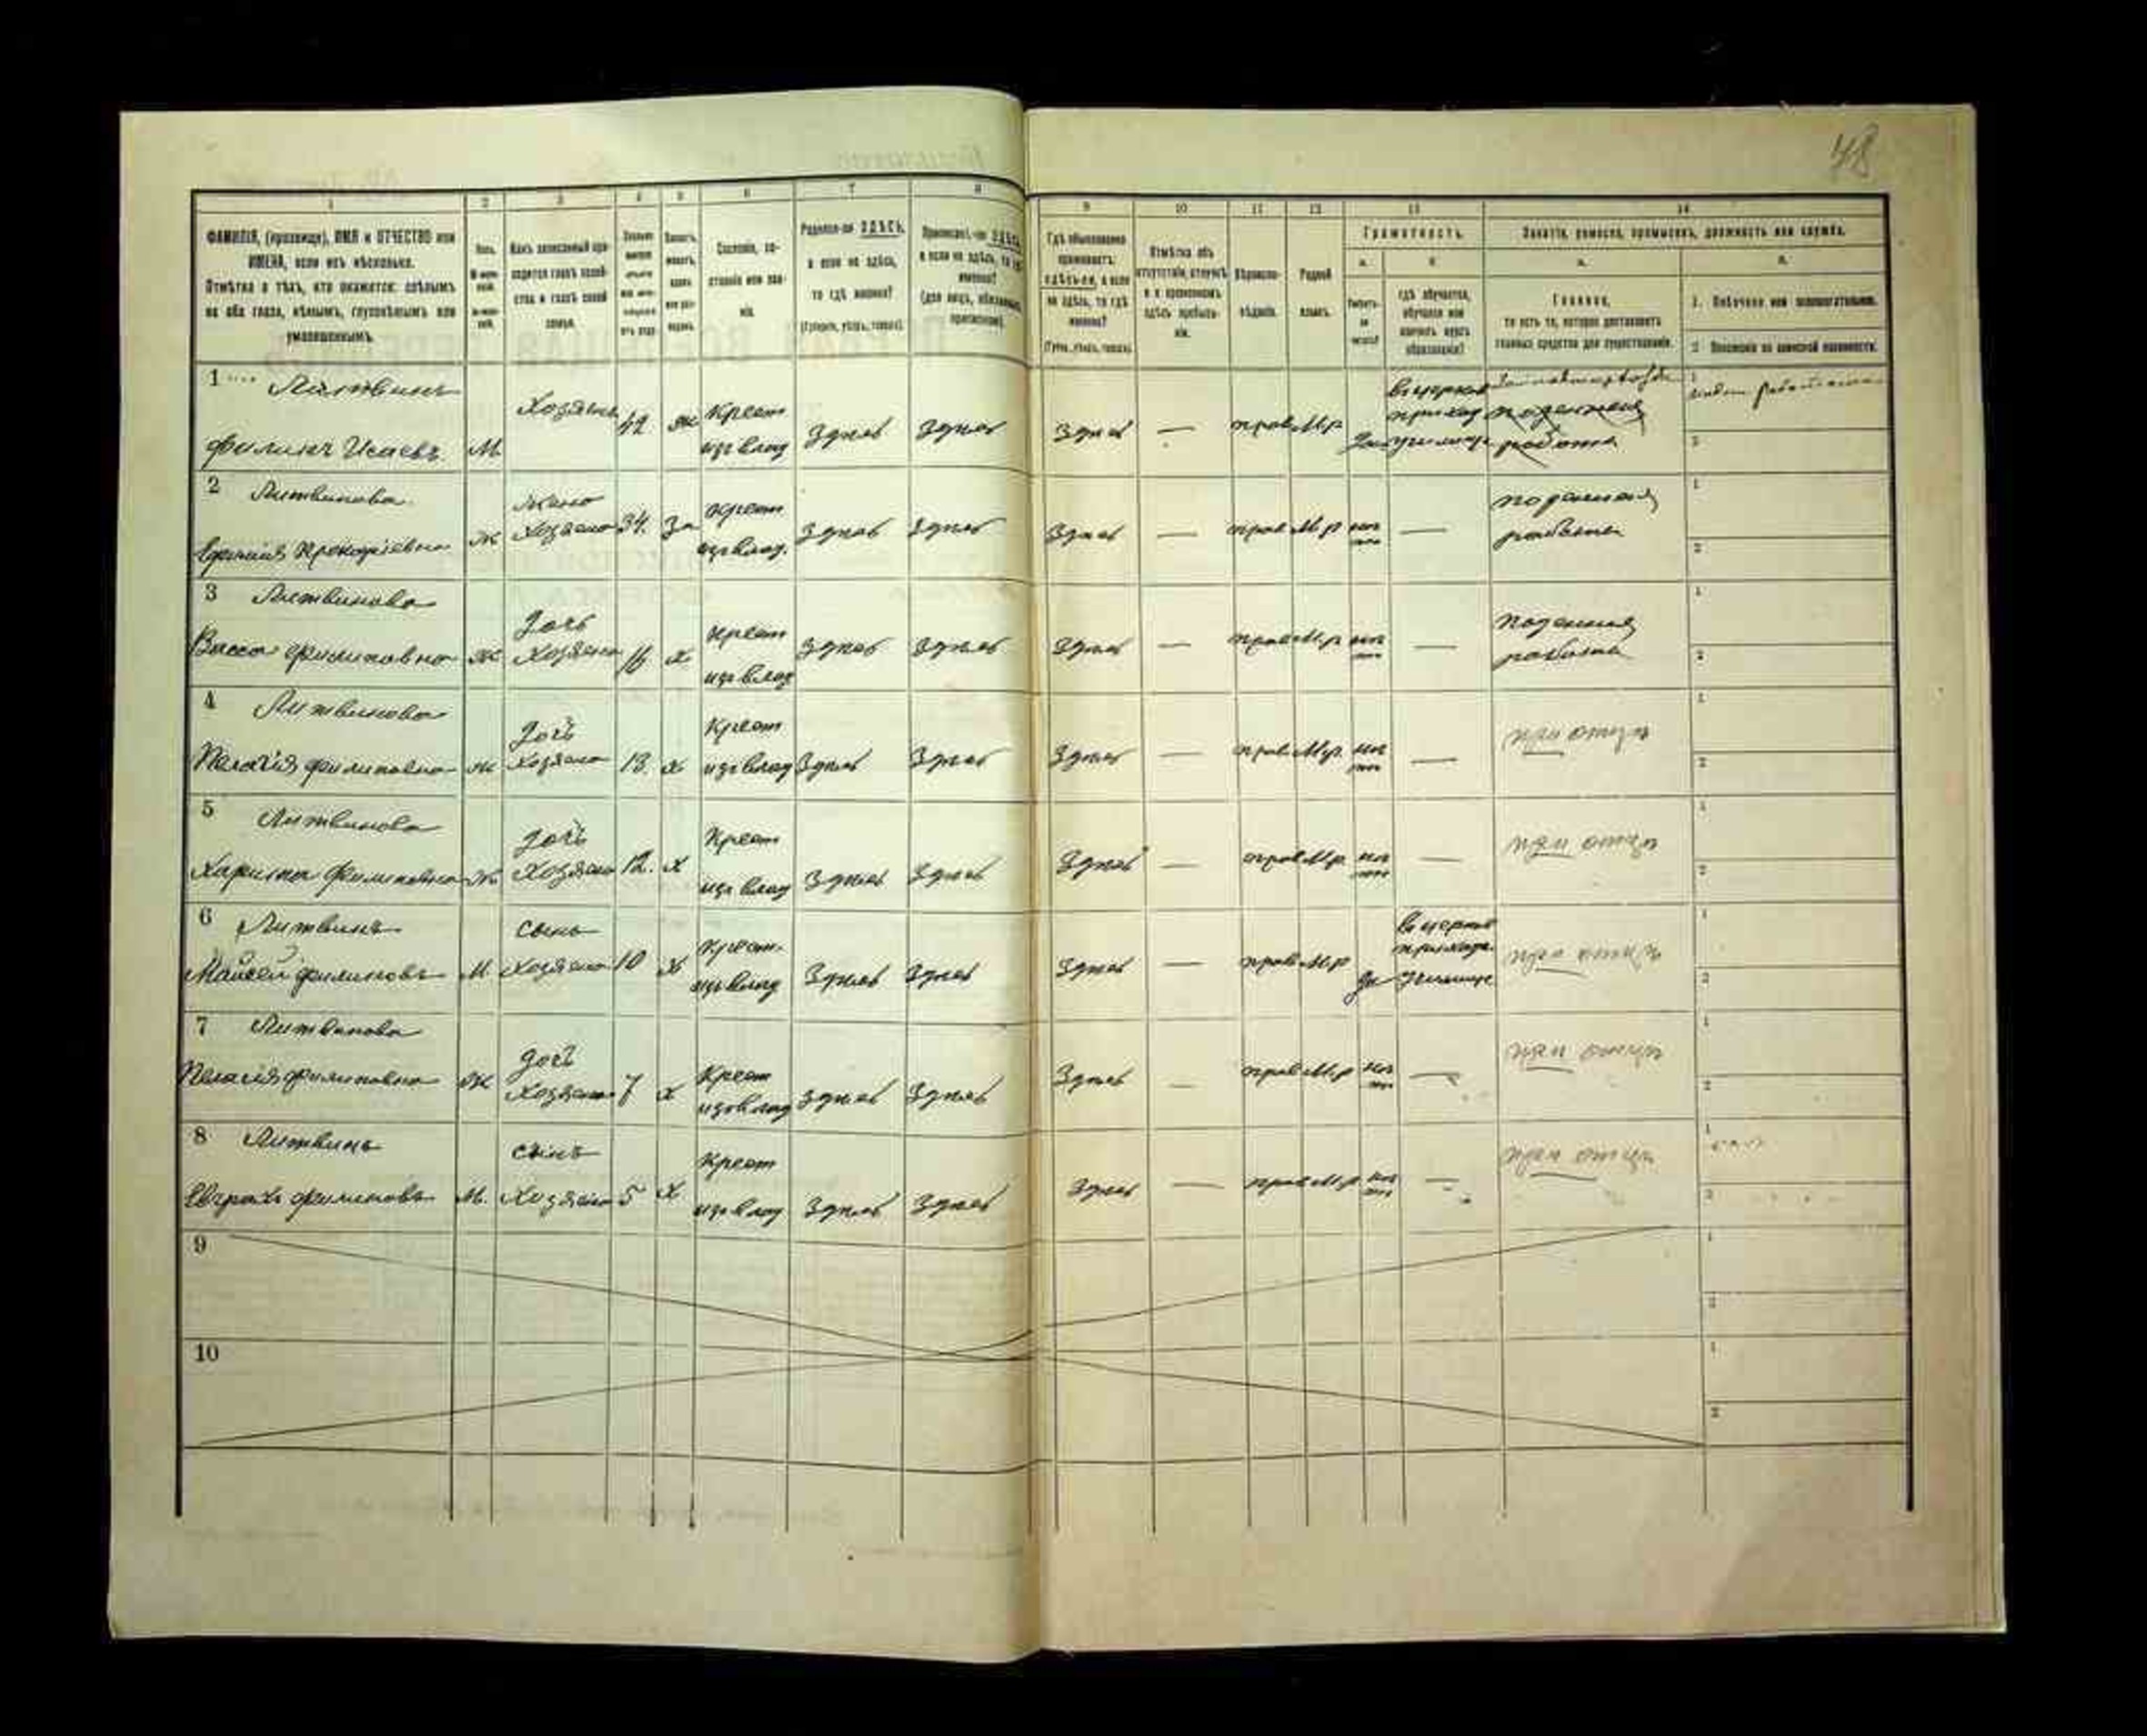 48
1 2 3 4 5 6 7 8 9 10 11 12 13 14
ФАМИЛІЯ, (прозвище), ИМЯ и ОТЧЕСТВО или
ИМЕНА, если ихъ нѣсколько.
Отмѣтка о тѣхъ, кто окажется: слѣпымъ
на оба глаза, нѣмымъ, глухонѣмымъ или
умалишеннымъ.
Полъ.
Какъ записанный при-
ходится главѣ хозяй-
ства и главѣ своей
семьи.
Состояніе, со-
словіе или зва-
ніе.
Родился-ли ЗДѢСЬ,
а если не здѣсь,
то гдѣ именно?
(Губернія, уѣздъ, городъ).
Приписанъ-ли ЗДѢСЬ,
а если не здѣсь, то гдѣ
именно?
(для лицъ, обязанныхъ
припискою).
Гдѣ обыкновенно
проживаетъ:
здѣсь-ли, а если
не здѣсь, то гдѣ
именно?
(Губ., уѣздъ, городъ).
Отмѣтка объ
отсутствіи, отлучкѣ
и о временномъ
здѣсь пребыва-
ніи.
Вѣроиспо-
вѣданіе.
Родной
языкъ.
Грамотность.
а. б.
Умѣетъ-
ли
читать?
гдѣ обучается,
обучался или
кончилъ курсъ
образованія?
Занятіе, ремесло, промыселъ, должность или служба.
а.
Главное,
то есть то, которое доставляетъ
главныя средства для существованія.
б.
1. Побочное или вспомогательное.
2. Положеніе по воинской повинности.
1 Литвинъ
Филипъ Исаевъ М Хозяинъ 42 ж Крест
изъ влад Здѣсь Здѣсь Здѣсь — прав М.р да
в церков
приход
училищѣ
поденная
работа
2 Литвинова
Прокофіевна ж жена
Хозяина 34. За крест
изъ влад. Здѣсь Здѣсь Здѣсь — прав М.р нѣ
тъ — поденная
работа
3 Литвинова
Васса Филиповна ж дочь
Хозяина 16 х крест
изъ влад Здѣсь Здѣсь Здѣсь — прав М.р нѣ
тъ — поденная
работа
4 Литвинова
Пелагія Филиповна ж дочь
Хозяина 13. х Крест
изъ влад Здѣсь Здѣсь Здѣсь — прав М.р. нѣ
тъ — при отцѣ
5 Литвинова
Харитина Филиповна ж дочь
Хозяина 12. х Крест
изъ влад Здѣсь Здѣсь Здѣсь — прав М.р. нѣ
тъ — при отцѣ
6 Литвинъ
Мойсей Филиповъ М сынъ
Хозяина 10 х Крест.
изъ влад Здѣсь Здѣсь Здѣсь — прав М.р да
в церков
приход.
училищѣ
при отцѣ
7 Литвинова
Пелагія Филиповна ж дочь
Хозяина 7 х Крест
изъ влад Здѣсь Здѣсь Здѣсь — прав М.р нѣ
тъ — при отцѣ
8 Литвинъ
Филиповъ М. сынъ
Хозяина 5 х Крест
изъ влад Здѣсь Здѣсь Здѣсь — прав М.р нѣ
тъ — при отцѣ
9
10